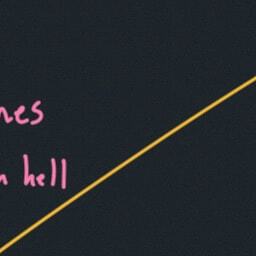 nes
n hell